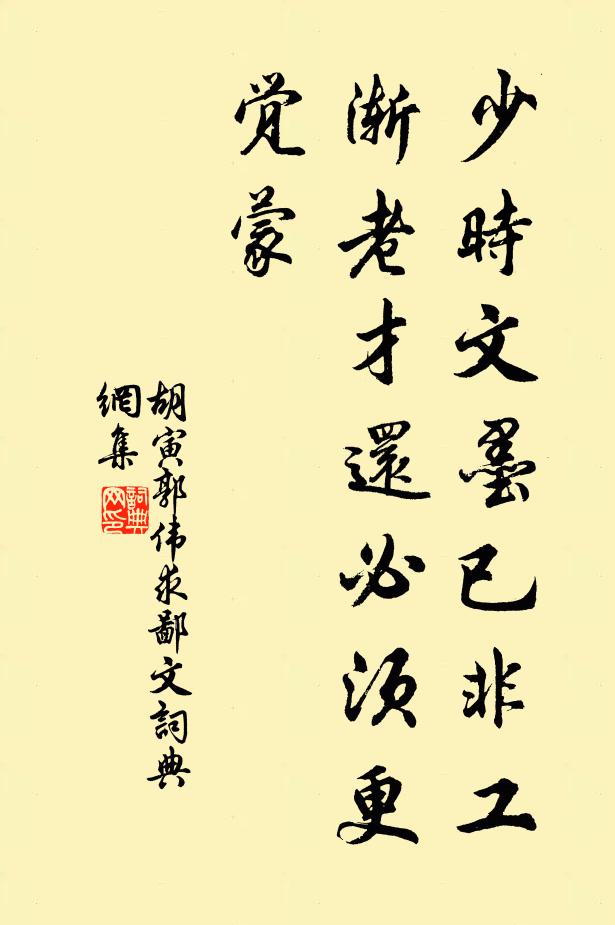 少時文墨已非工
漸老才還必須更
觉蒙
胡寅郭伟求鄙文詞典
網集
詞典
网印